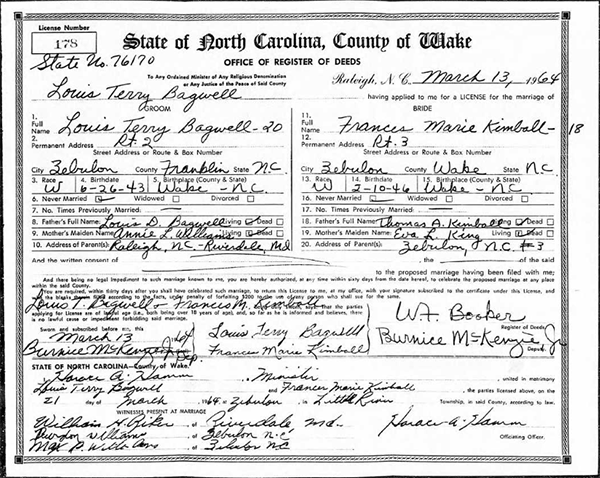 License Number
178
State No. 76170
State of North Carolina, County of Wake
OFFICE OF REGISTER OF DEEDS
To Any Ordained Minister of Any Religious Denomination
or Any Justice of the Peace of Said County
Raleigh, N. C. March 13, 1964
Louis Terry Bagwell having applied to me for a LICENSE for the marriage of
GROOM
1. Full Name Louis Terry Bagwell-20
2. Permanent Address Rt. 2
Street Address or Route & Box Number
City Zebulon County Franklin State N.C.
3. Race W 4. Birthdate 6-26-43 5. Birthplace (County & State) Wake - N.C.
6. Never Married Widowed Divorced
7. No. Times Previously Married
8. Father's Full Name Louis D. Bagwell Living Dead
9. Mother's Maiden Name Annie L. Williams Living Dead
10. Address of Parent(s) Raleigh, NC - Riverdale, Md
BRIDE
11. Full Name Frances Marie Kimball - 18
12. Permanent Address Rt. 3
Street Address or Route & Box Number
City Zebulon County Wake State N.C.
13. Race W 14. Birthdate 2-10-46 15. Birthplace (County & State) Wake - N.C.
16. Never Married Widowed Divorced
17. No. Times Previously Married
18. Father's Full Name Thomas A. Kimball Living Dead
19. Mother's Maiden Name Eva L. King Living Dead
20. Address of Parent(s) Zebulon, N.C. #3
And the written consent of , the of the said
to the proposed marriage having been filed with me;
And there being no legal impediment to such marriage known to me, you are hereby authorized, at any time within sixty days from the date hereof, to celebrate the proposed marriage at any place within the said County.
You are required, within thirty days after you shall have celebrated such marriage, to return this License to me, at my office, with your signature subscribed to the certificate under this License, and
the blanks filled according to the facts, under penalty of forfeiting $200 to the use of any person who shall sue for the same.
Louis T. Bagwell - Frances M. Kimball the parties
applying for License are of lawful age (i.e., both being over 18 years of age), and, so far as he is informed and believes, there is
no lawful cause or impediment forbidding said marriage.
Sworn and subscribed before me, this
March 13 1964
Burnice McKenzie, Jr. Dep.
Louis Terry Bagwell
Frances Marie Kimball
W.H. Booker
Register of Deeds
Burnice McKenzie Jr
Deputy
STATE OF NORTH CAROLINA—County of Wake.
Horace A. Hamm, Minister united in matrimony
Louis Terry Bagwell and Frances Marie Kimball, the parties licensed above, on the
21 day of March 1964 at Zebulon in Little River Township, in said County, according to law.
WITNESSES PRESENT AT MARRIAGE
William H. of Riverdale Md.
Williams of Zebulon N.C
P. Williams of Zebulon NC
Horace A. Hamm
Officiating Officer.